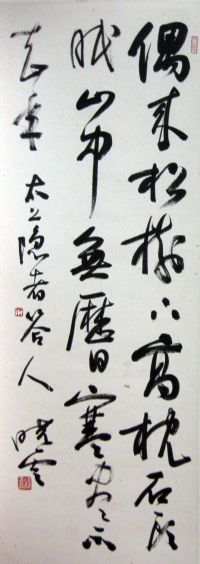 偶来松樹下高枕石頭
眠山中無歷日寒尽不
知年 太上隐者答人 晓雲